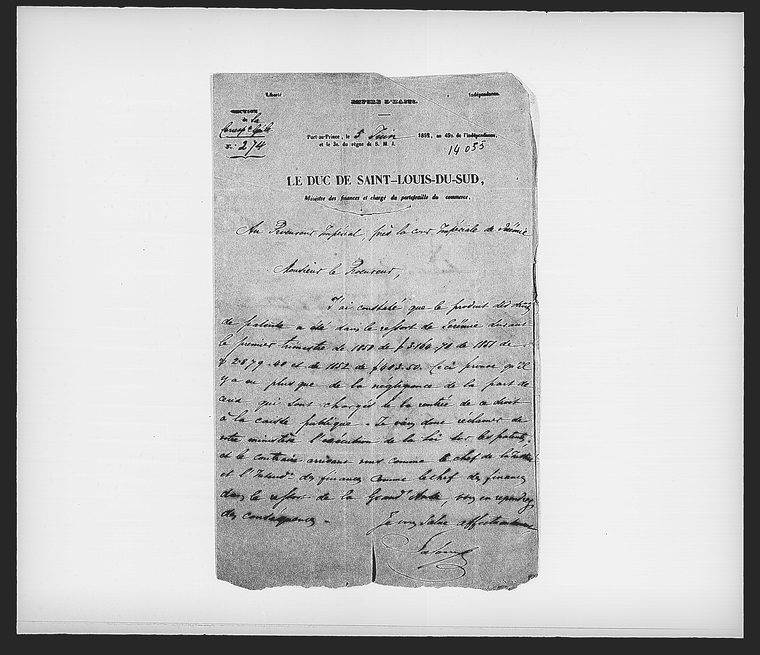 Liberté. Indépendance.
EMPIRE D'HAITI.
SECTION
de la
Corresp.ce Gale
N.° 274
Port-au-Prince, le 5 Juin 1852, an 49e. de l'indépendance,
et le 3e. du règne de S. M. I.
14 055
LE DUC DE SAINT-LOUIS-DU-SUD,
Ministre des finances et chargé du portefeuille du commerce,
Au Procureur Impérial, près la cour Impériale de Jérémie
Monsieur le Procureur,
J'ai constaté que le produit des droits
de patente a été dans le ressort de Jérémie durant
le premier trimestre de 1850 de de 1851 de
2879-40 et de 1852 de 403.50. Ceci prouve qu'il
y a eu plus que de la négligence de la part de
ceux qui sont chargés de la rentrée de ce droit
à la caisse publique. Je viens donc réclamer de
votre ministère l'exécution de la loi sur les patentes,
et le contraire arrivant vous comme le chef de la
et l'Intend.t des finances comme le chef des finances
dans le ressort de la Grand'Anse, vous en répondrez
des conséquences.
Je vous salue affectueusement
Salomon